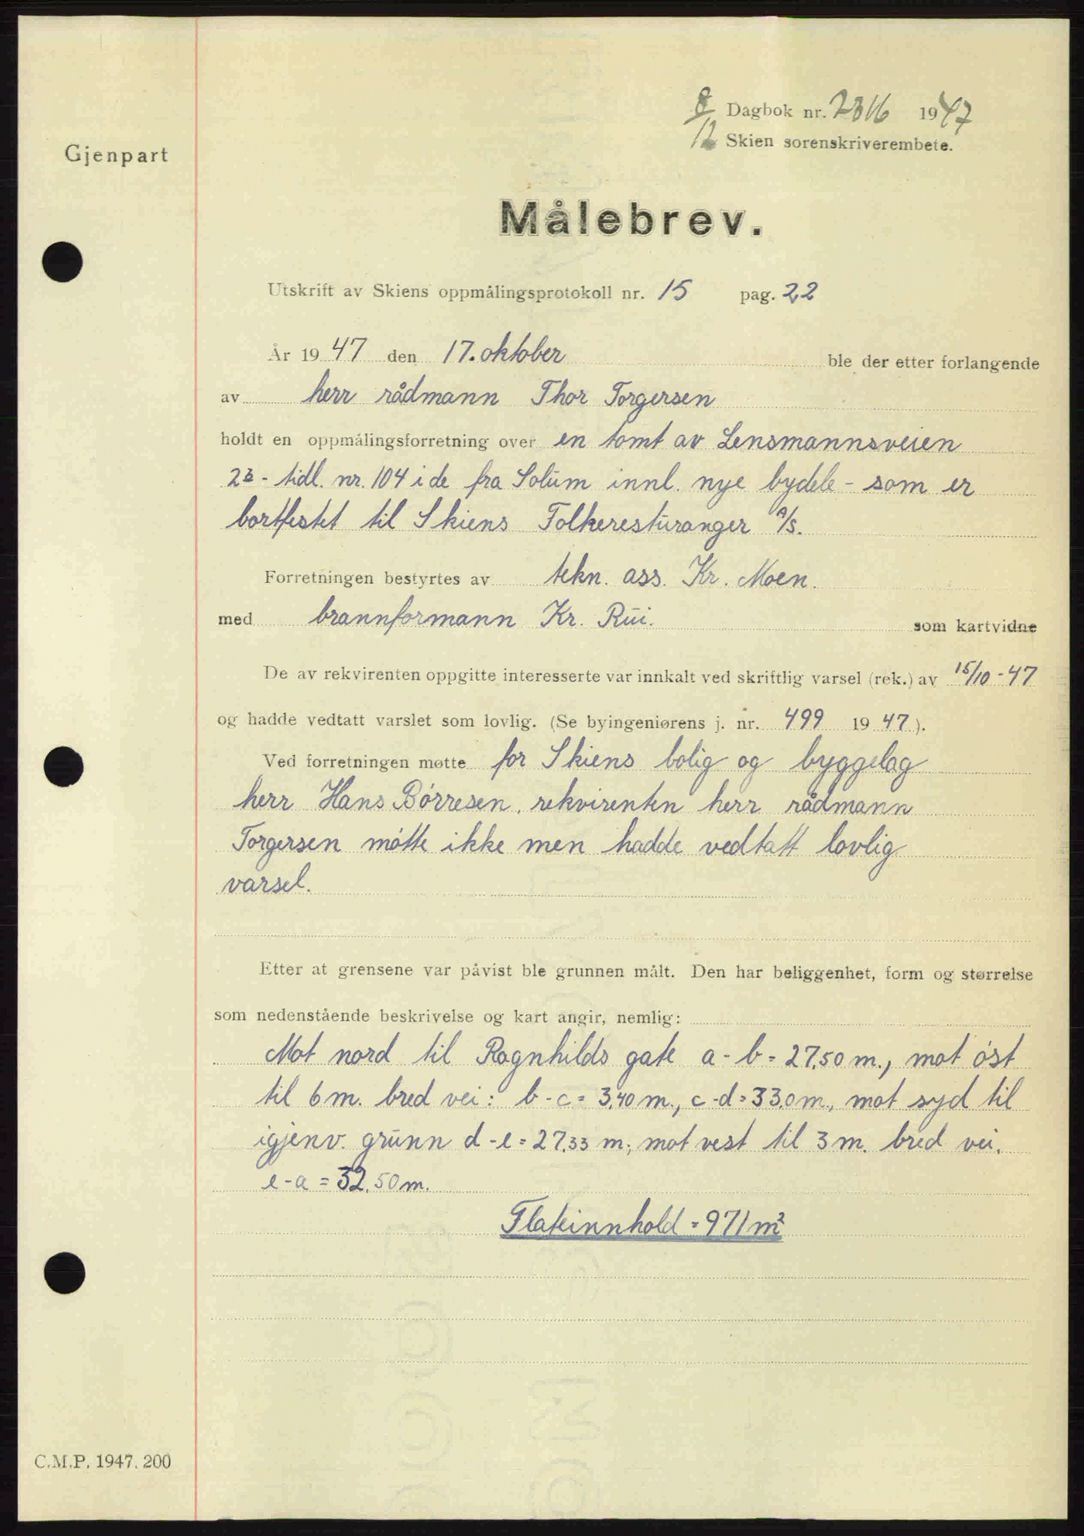 8/12 Dagbok nr. 2316 1947
Skien sorenskriverembete.
Gjenpart
Målebrev.
Utskrift av Skiens oppmålingsprotokoll nr. 15 pag. 22
År 1947 den 17. oktober ble der etter forlangende
av herr rådmann Thor Torgersen
holdt en oppmålingsforretning over en tomt av Lensmannsveien
23 - tidl. nr. 104 i de fra Solum innl. nye bydele - som er
bortfestet til Skiens Folkeresturanger A/S.
Forretningen bestyrtes av tekn. ass. Kr. Moen.
med brannformann Kr. Rui. som kartvidne
De av rekvirenten oppgitte interesserte var innkalt ved skriftlig varsel (rek.) av 15/10-47
og hadde vedtatt varslet som lovlig. (Se byingeniørens j. nr. 499 1947).
Ved forretningen møtte for Skiens bolig og byggelag
herr Hans Børresen, rekvirenten herr rådmann
Torgersen møtte ikke men hadde vedtatt lovlig
varsel.
Etter at grensene var påvist ble grunnen målt. Den har beliggenhet, form og størrelse
som nedenstående beskrivelse og kart angir, nemlig:
Mot nord til Ragnhilds gate a-b = 27,50 m., mot øst
til 6 m. bred vei: b-c = 3,40 m., c-d = 33,0 m., mot syd til
igjenv. grunn d-e = 27,33 m; mot vest til 3 m. bred vei,
e-a = 32,50 m.
Flateinnhold = 971 m²
C.M.P. 1947. 200